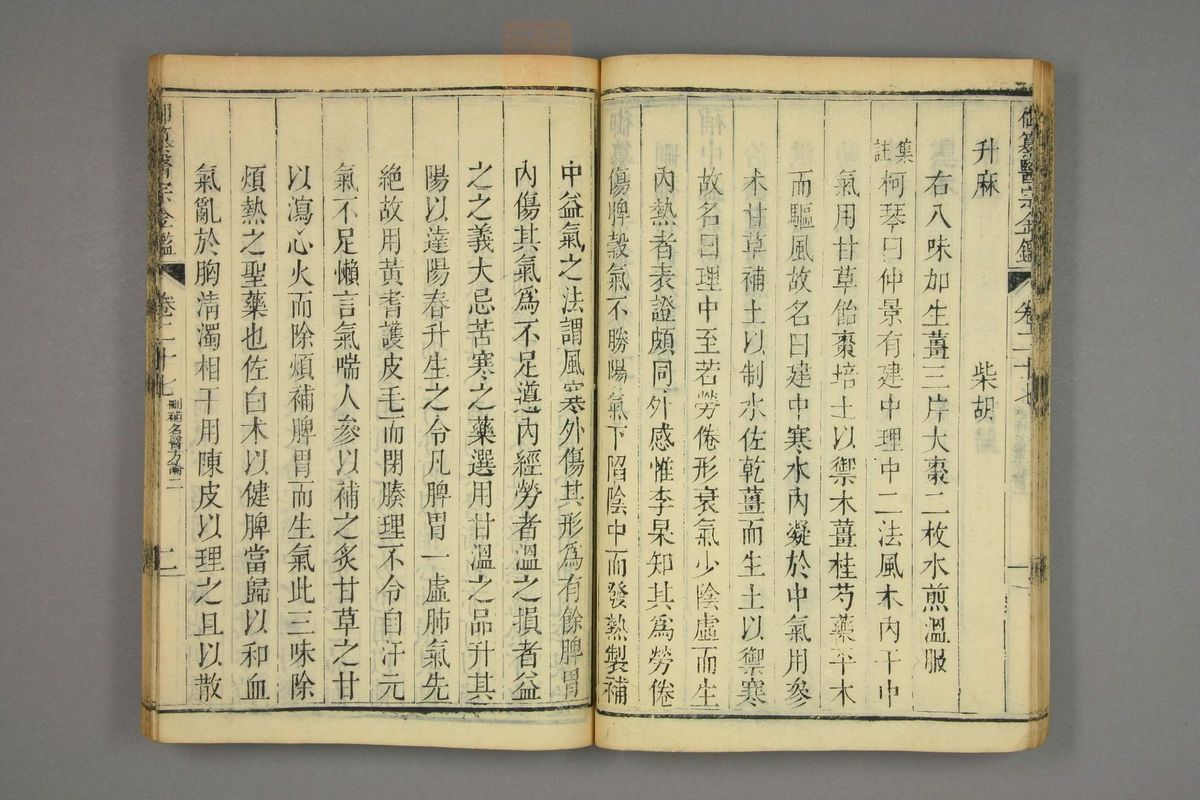 御纂醫宗金鑑 卷二十七
升麻 柴胡
右八味加生薑三片大棗二枚水煎溫服
集註柯琴曰仲景有建中理中二法風木內干中
氣用甘草飴棗培土以禦木薑桂芍藥平木
而驅風故名曰建中寒水內凝於中氣用參
朮甘草補土以制水佐乾薑而生土以禦寒
故名曰理中至若勞倦形衰氣少陰虛而生
內熱者表證頗同外感惟李杲知其爲勞倦
傷脾穀氣不勝陽氣下陷陰中而發熱製補
中益氣之法謂風寒外傷其形爲有餘脾胃
內傷其氣爲不足遵內經勞者溫之損者益
之之義大忌苦寒之藥選用甘溫之品升其
陽以達陽春升生之令凡脾胃一虛肺氣先
絕故用黃耆護皮毛而閉腠理不令自汗元
氣不足懶言氣喘人參以補之炙甘草之甘
以瀉心火而除煩補脾胃而生氣此三味除
煩熱之聖藥也佐白朮以健脾當歸以和血
氣亂於胸淸濁相干用陳皮以理之且以散
御纂醫宗金鑑 卷二十七 刪補名醫方論二 二